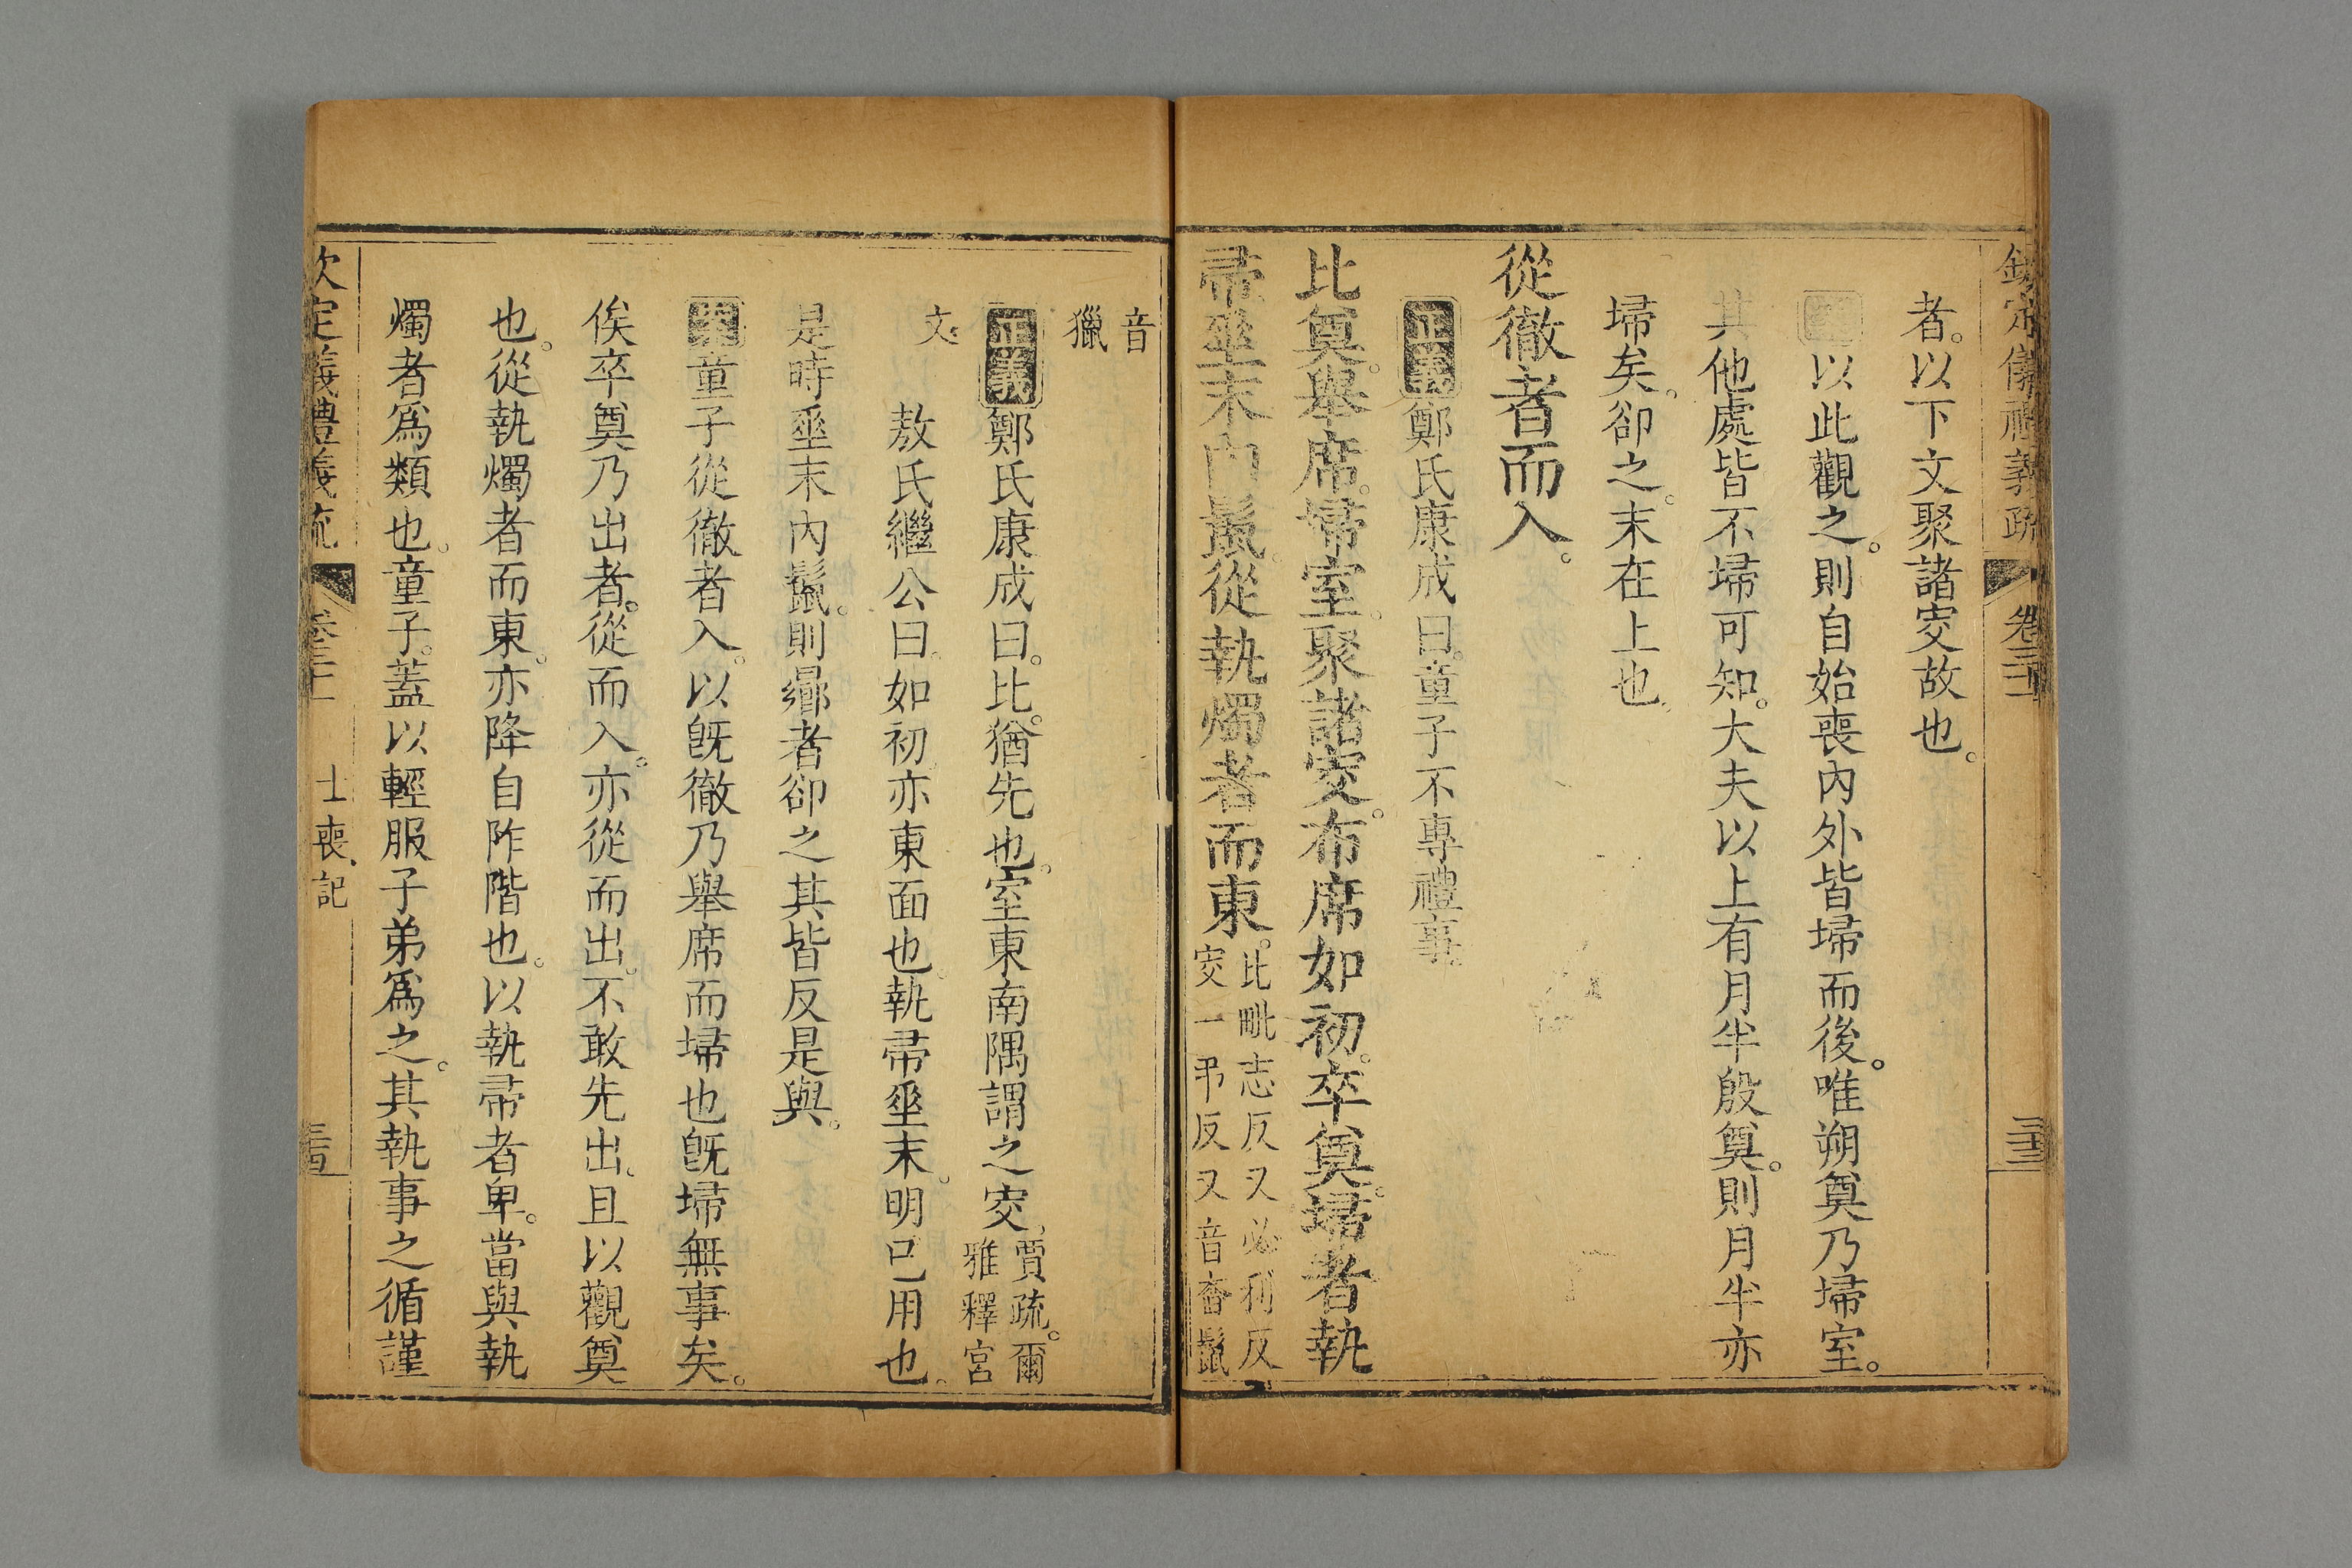 欽定儀禮義疏 卷三十一 三十三
者。以下文聚諸窔故也。
以此觀之。則自始喪內外皆埽而後。唯朔奠乃埽室。
其他處皆不埽可知。大夫以上有月半殷奠。則月半亦
埽矣。卻之。末在上也。
從徹者而入。
正義鄭氏康成曰。童子不專禮事。
比奠。舉席。埽室。聚諸窔。布席如初。卒奠。埽者執
帚垂末內鬛。從執燭者而東。
比毗志反又必利反
窔一弔反又音杳鬛
音
獵
正義鄭氏康成曰。比。猶先也。室東南隅謂之窔。
賈疏。爾
雅釋宮
文。
敖氏繼公曰。如初亦東面也。執帚垂末。明已用也。
是時垂末內鬛。則曏者卻之其皆反是與。
案童子從徹者入。以旣徹乃舉席而埽也旣埽無事矣。
俟卒奠乃出者。從而入。亦從而出。不敢先出。且以觀奠
也。從執燭者而東。亦降自阼階也。以執帚者卑。當與執
燭者爲類也。童子。蓋以輕服子弟爲之。其執事之循謹
欽定儀禮義疏 卷三十一 士喪、記 三十四